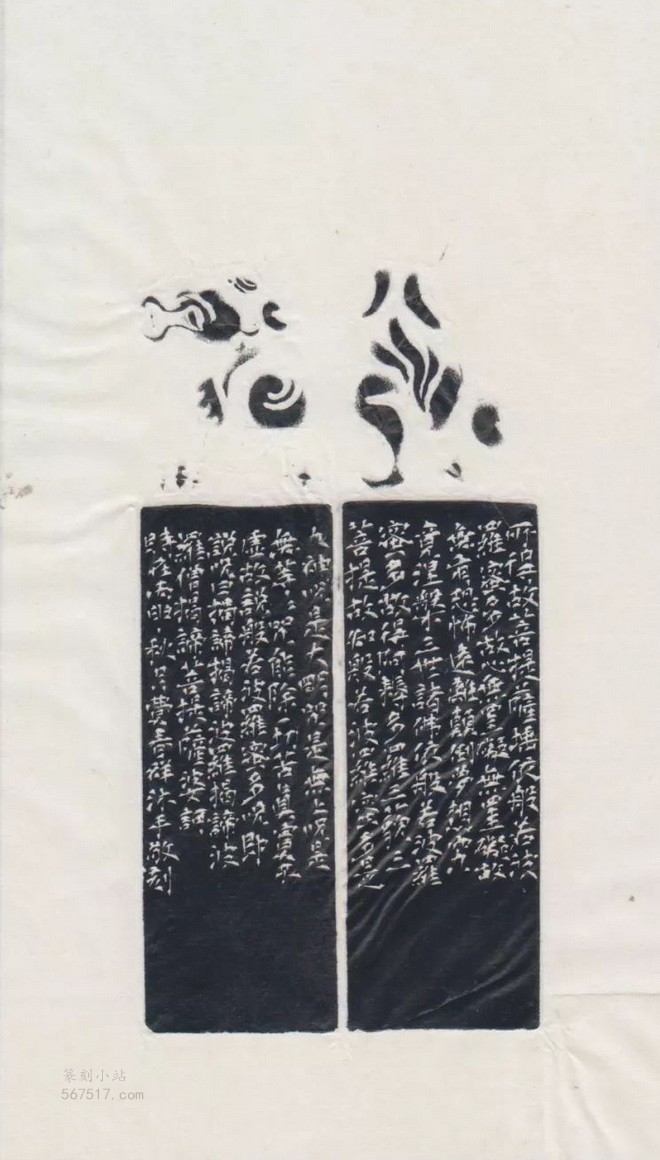 所得故菩提薩埵依般若波
羅蜜多故心無罣礙無罣礙故
無有恐怖遠離顛倒夢想究
竟涅槃三世諸佛依般若波羅
蜜多故得阿耨多羅三藐三
菩提故知般若波羅蜜多是
大神咒是大明咒是無上咒是
無等等咒能除一切苦真實不
虛故說般若波羅蜜多咒即
說咒曰揭諦揭諦波羅揭諦波
羅僧揭諦菩提薩婆訶
時在 秋月費善群沐手敬刻
篆刻小站
567517.com